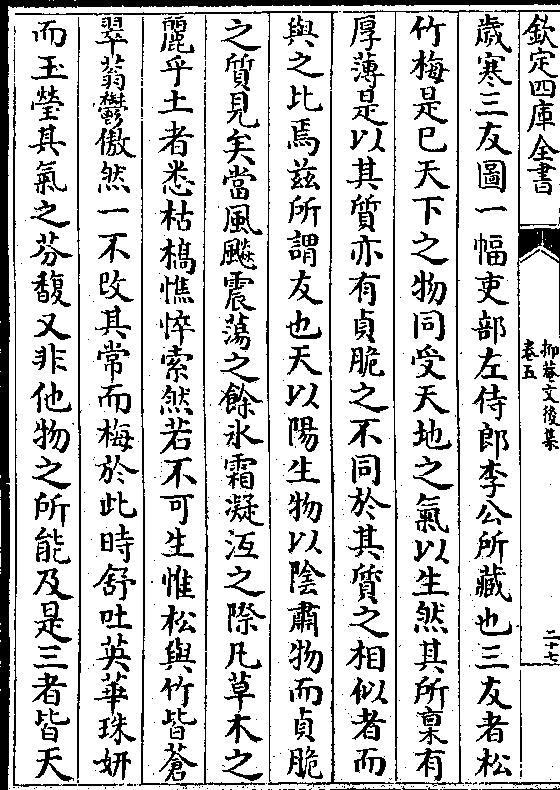 欽定四庫全書
抑菴文後集
卷五
二十七
歲寒三友圖一幅吏部左侍郎李公所藏也三友者松
竹梅是已天下之物同受天地之氣以生然其所稟有
厚薄是以其質亦有貞脆之不同於其質之相似者而
與之比焉兹所謂友也天以陽生物以陰肅物而貞脆
之質見矣當風飈震蕩之餘氷霜凝沍之際凡草木之
麗乎土者悉枯槁憔悴索然若不可生惟松與竹皆蒼
翠蓊鬱傲然一不改其常而梅於此時舒吐英華珠妍
而玉瑩其氣之芬馥又非他物之所能及是三者皆天